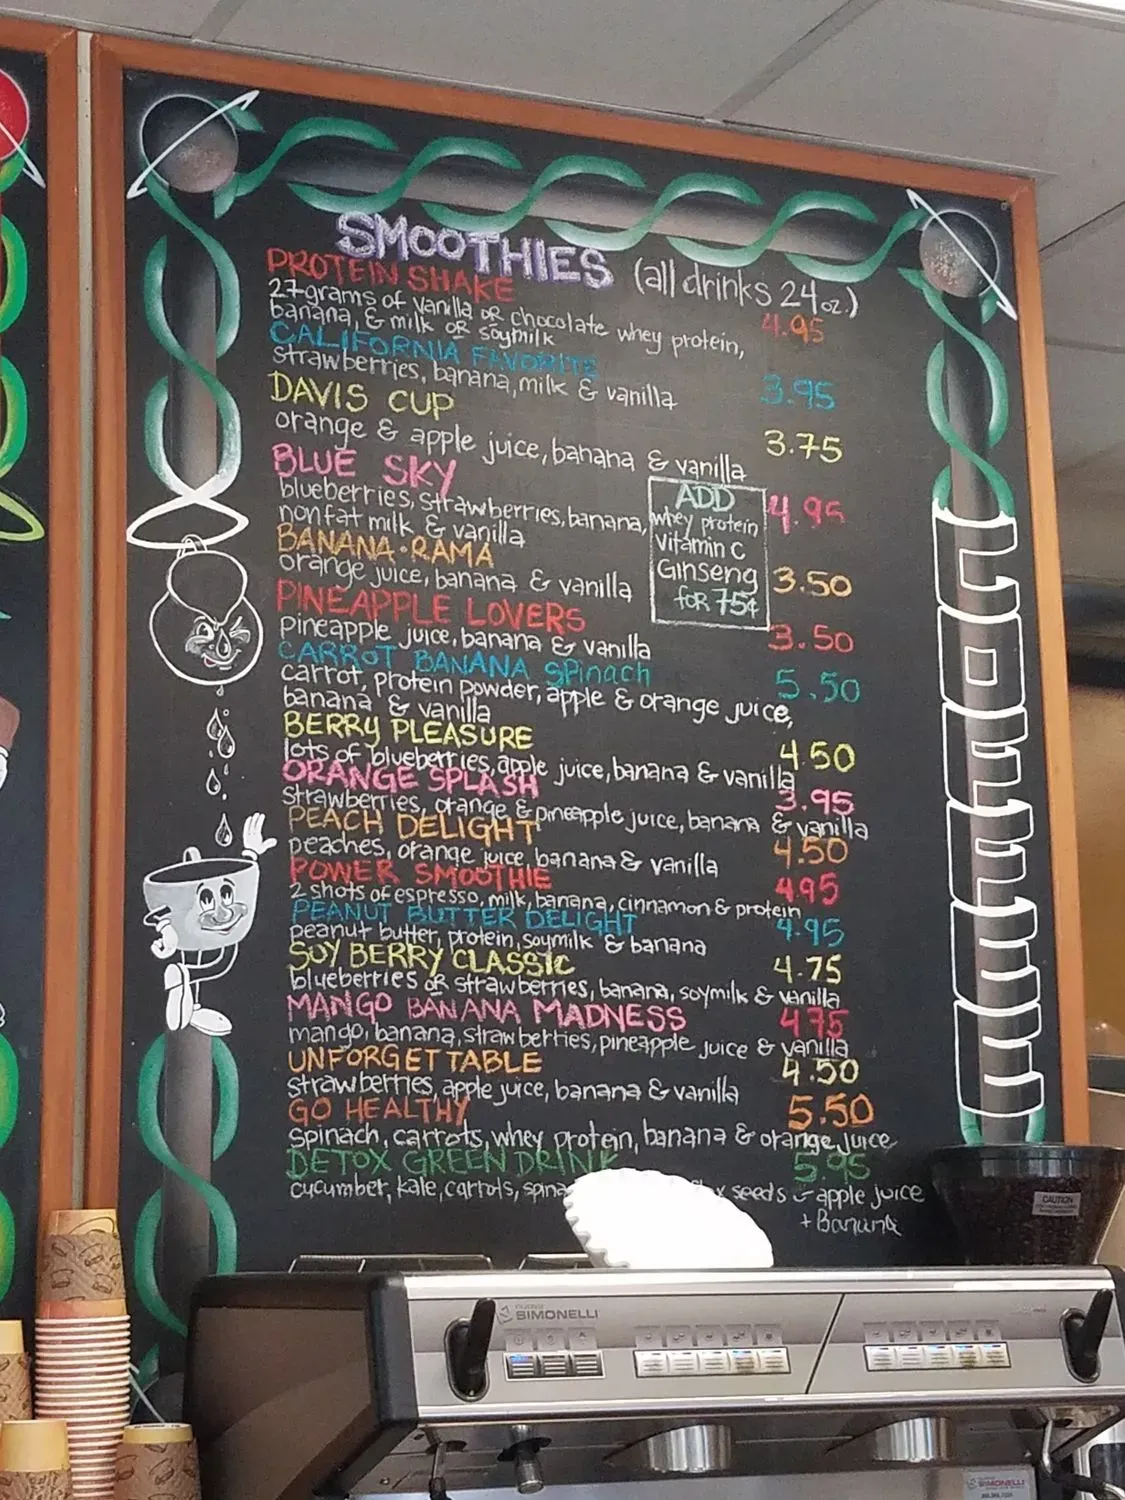 SMOOTHIES (all drinks 24oz.)
PROTEIN SHAKE
27 grams of vanilla OR chocolate whey protein,
banana, & milk OR soymilk
4.95
CALIFORNIA FAVORITE
strawberries, banana, milk & vanilla
3.95
DAVIS CUP
orange & apple juice, banana & vanilla
3.75
BLUE SKY
blueberries, strawberries, banana,
nonfat milk & vanilla
4.95
ADD
whey protein
vitamin C
Ginseng
foR 75¢
BANANA·RAMA
orange juice, banana & vanilla
3.50
PINEAPPLE LOVERS
Pineapple juice, banana & vanilla
3.50
CARROT BANANA SPinach
carrot, protein powder, apple & orange juice,
banana & vanilla
5.50
BERRY PLEASURE
lots of blueberries, apple juice, banana & vanilla
4.50
ORANGE SPLASH
strawberries, orange & pineapple juice, banana & vanilla
3.95
PEACH DELIGHT
peaches, orange juice, banana & vanilla
4.50
POWER SMOOTHIE
2 shots of espresso, milk, banana, cinnamon & protein
4.95
PEANUT BUTTER DELIGHT
peanut butter, protein, soymilk & banana
4.95
SOY BERRY CLASSIC
blueberries OR strawberries, banana, soymilk & vanilla
4.75
MANGO BANANA MADNESS
mango, banana, strawberries, pineapple juice & vanilla
4.75
UNFORGETTABLE
strawberries, apple juice, banana & vanilla
4.50
GO HEALTHY
spinach, carrots, whey protein, banana & orange juice
5.50
DETOX GREEN DRINK
cucumber, kale, carrots, seeds & apple juice
+ Banana
5.95
COFFEE
CAUTION
nuova
SIMONELLI
SIMONELLI